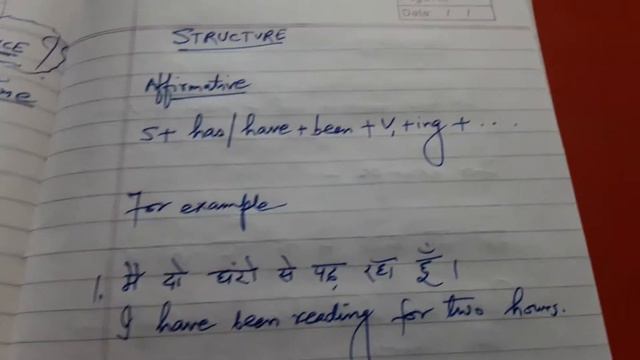 Date / /
STRUCTURE
Affirmative
S+ has/have + been + V₁ +ing + ....
For example
1. मैं दो घंटो से पढ़ रहा हूँ।
I have been reading for two hours.